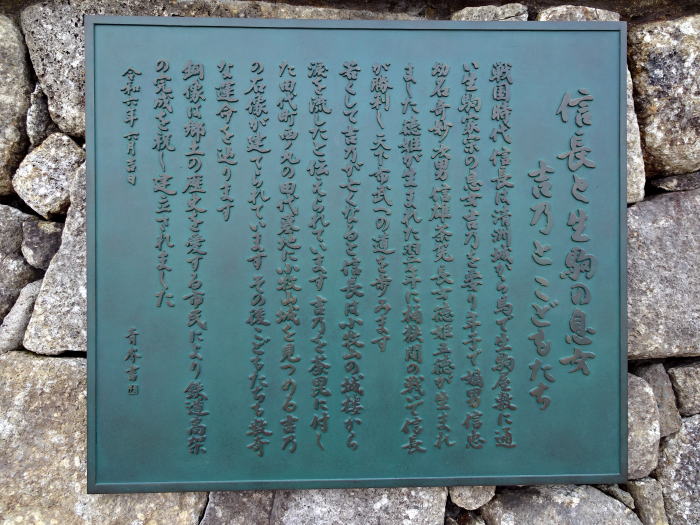 信長と生駒の息女
吉乃とこどもたち
戦国時代信長は清洲城から馬で生駒屋敷に通
い生駒家宗の息女吉乃を娶り年子で嫡男信忠
幼名奇妙次男信雄茶筅長女徳姫五徳が生まれ
ました徳姫が生まれた翌年に桶狭間の戦で信長
が勝利し天下布武への道を歩みます
若くして吉乃が亡くなると信長は小牧山の城楼から
涙を流したと伝えられています吉乃を荼毘に付し
た田代町西ノ丸の田代墓地に小牧山城を見つめる吉乃
の石像が建てられていますその後こどもたちも数奇
な運命を辿ります
銅像は郷土の歴史を愛する市民により鉄道高架
の完成を祝し建立されました
令和六年 月吉日